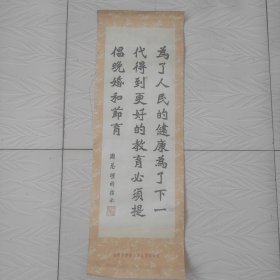 為了人民的健康為了下一
代得到更好的教育必須提
倡晚婚和節育
周總理的指示